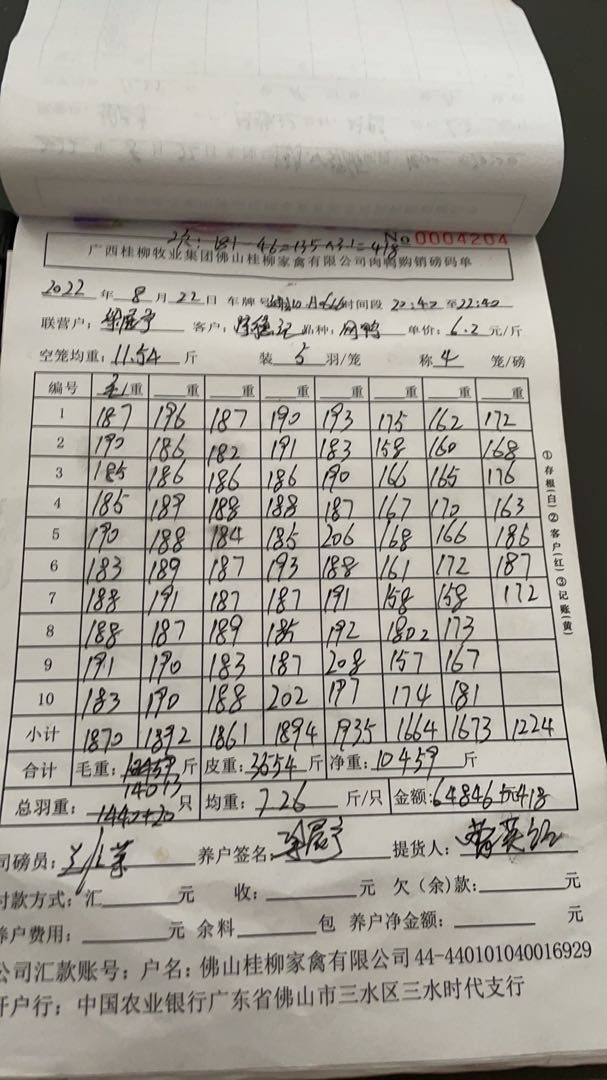 181-46=135×31=418
No 0004204
广西桂柳牧业集团佛山桂柳家禽有限公司肉鸭购销磅码单
2022 年 8 月 22 日 车牌号 时间段 20:40 至 22:40
联营户: 客户: 品种: 肉鸭 单价: 6.2 元/斤
空笼均重: 11.54 斤 装 5 羽/笼 称 4 笼/磅
编号 毛重 重 重 重 重 重 重 重
1 187 196 187 190 193 175 162 172
2 190 186 182 191 183 158 160 168
3 185 186 186 186 190 166 165 176
4 185 189 188 188 187 167 170 163
5 190 188 184 185 206 168 166 186
6 183 189 187 193 188 161 172 187
7 188 191 187 187 191 158 158 172
8 188 187 189 185 192 1802 173
9 191 190 183 187 208 157 167
10 183 190 188 202 197 174 181
小计 1870 1892 1861 1894 1935 1664 1673 1224
合计 毛重: 14013 斤 皮重: 3554 斤 净重: 10459 斤
总羽重: 1440+20 只 均重: 7.26 斤/只 金额: 64846元418
司磅员: 养户签名: 提货人:
付款方式: 汇 元 收: 元 欠(余)款: 元
养户费用: 元 余料 包 养户净金额: 元
公司汇款账号: 户名: 佛山桂柳家禽有限公司 44-440101040016929
开户行: 中国农业银行广东省佛山市三水区三水时代支行
①存根(白)②客户(红)③记账(黄)